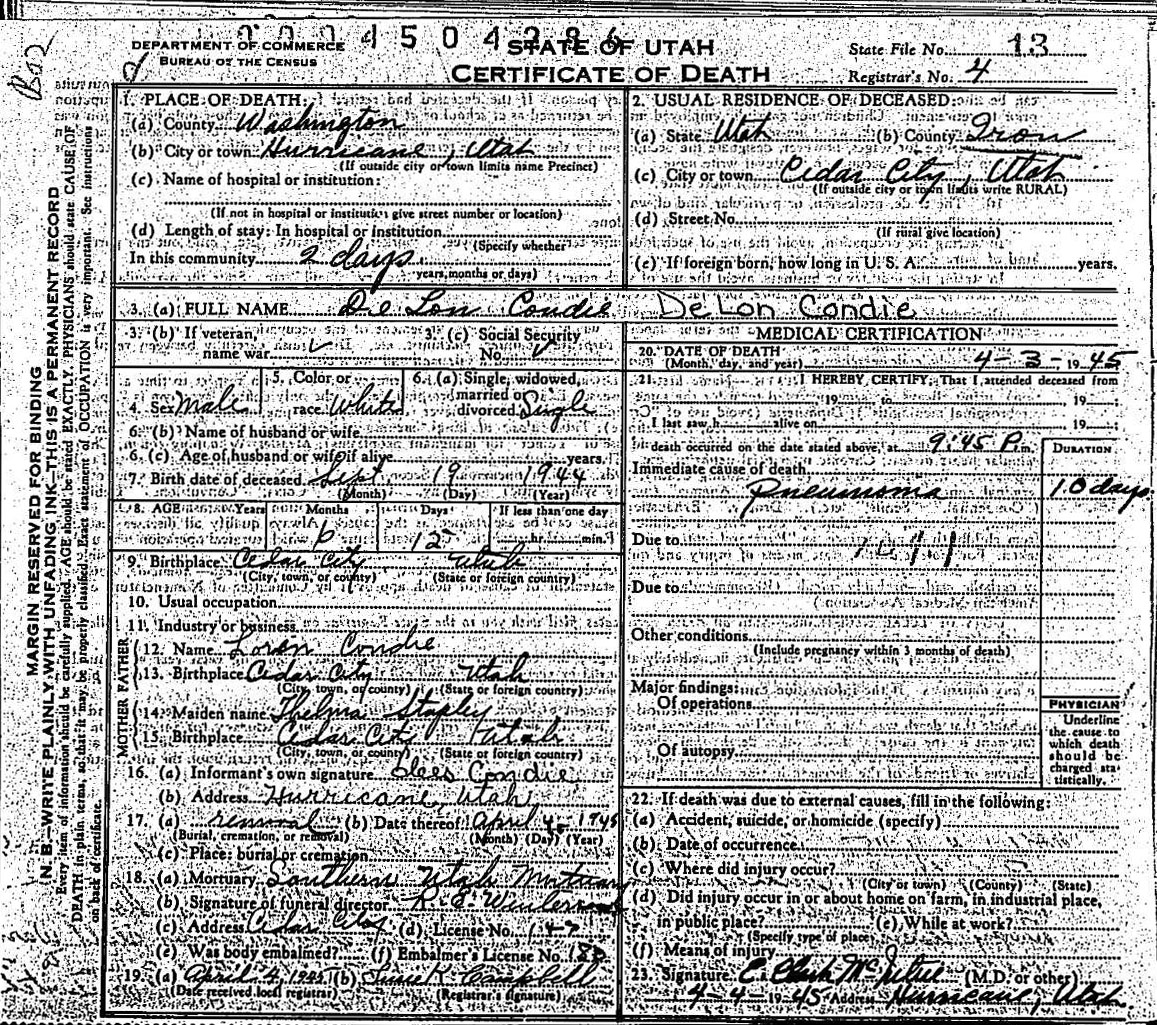 0004504286
DEPARTMENT OF COMMERCE
BUREAU OF THE CENSUS
STATE OF UTAH
CERTIFICATE OF DEATH
State File No. 13
Registrar's No. 4
MARGIN RESERVED FOR BINDING
N. B.—WRITE PLAINLY WITH UNFADING INK—THIS IS A PERMANENT RECORD
Every item of information should be carefully supplied. AGE should be stated EXACTLY. PHYSICIANS should state CAUSE OF
DEATH in plain terms, so that it may be properly classified. Exact statement of OCCUPATION is very important. See instructions
on back of certificate.
1. PLACE OF DEATH:
(a) County Washington
(b) City or town Hurricane, Utah
(If outside city or town limits name Precinct)
(c) Name of hospital or institution:
(If not in hospital or institution give street number or location)
(d) Length of stay: In hospital or institution
(Specify whether
In this community 2 days
years, months or days)
2. USUAL RESIDENCE OF DECEASED:
(a) State Utah (b) County Iron
(c) City or town Cedar City, Utah
(If outside city or town limits write RURAL)
(d) Street No.
(If rural give location)
(e) If foreign born, how long in U. S. A. years.
3. (a) FULL NAME De Lon Condie DeLon Condie
3. (b) If veteran, name war
3. (c) Social Security No.
4. Sex Male
5. Color or race White
6. (a) Single, widowed, married or divorced Single
6. (b) Name of husband or wife
6. (c) Age of husband or wife if alive years.
7. Birth date of deceased Sept 19 1944
(Month) (Day) (Year)
8. AGE Years Months Days If less than one day
6 15 hr. min.
9. Birthplace Cedar City Utah
(City, town, or county) (State or foreign country)
10. Usual occupation
11. Industry or business
FATHER
12. Name Loren Condie
13. Birthplace Cedar City Utah
(City, town, or county) (State or foreign country)
MOTHER
14. Maiden name Thelma Stapley
15. Birthplace Cedar City Utah
(City, town, or county) (State or foreign country)
16. (a) Informant's own signature Condie
(b) Address Hurricane, Utah
17. (a) removal (b) Date thereof April 4- 1945
(Burial, cremation, or removal) (Month) (Day) (Year)
(c) Place: burial or cremation
18. (a) Mortuary Southern Utah Mortuary
(b) Signature of funeral director
(c) Address Cedar City (d) License No. 147
(e) Was body embalmed? (f) Embalmer's License No.
19. (a) April 4, 1945 (b) Campbell
(Date received local registrar) (Registrar's signature)
MEDICAL CERTIFICATION
20. DATE OF DEATH
(Month, day, and year) 4-3-1945
21. I HEREBY CERTIFY, That I attended deceased from
19 to 19
I last saw h alive on 19
death occurred on the date stated above, at 9:45 P.m.
DURATION
Immediate cause of death
Pneumonia 10 days
Due to
Due to
Other conditions
(Include pregnancy within 3 months of death)
Major findings:
Of operations
Of autopsy
PHYSICIAN
Underline
the cause to
which death
should be
charged sta-
tistically.
22. If death was due to external causes, fill in the following:
(a) Accident, suicide, or homicide (specify)
(b) Date of occurrence
(c) Where did injury occur?
(City or town) (County) (State)
(d) Did injury occur in or about home on farm, in industrial place,
in public place? (e) While at work?
(Specify type of place)
(f) Means of injury
23. Signature (M.D. or other)
4-4-1945 Address Hurricane, Utah